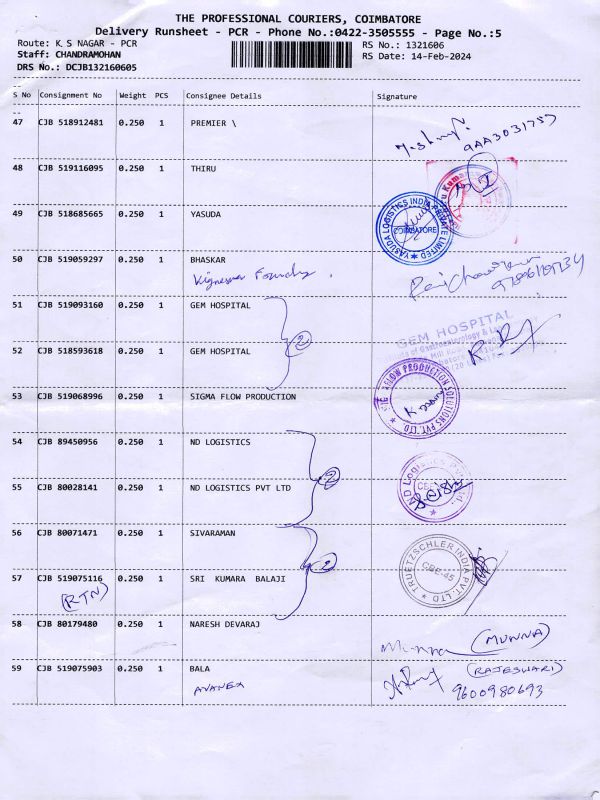 THE PROFESSIONAL COURIERS, COIMBATORE
Delivery Runsheet - PCR - Phone No.:0422-3505555 - Page No.:5
Route: K. S NAGAR - PCR
RS No.: 1321606
Staff: CHANDRAMOHAN
RS Date: 14-Feb-2024
DRS No.: DCJB132160605
S No Consignment No Weight PCS Consignee Details Signature
47 CJB 518912481 0.250 1 PREMIER \
48 CJB 519116095 0.250 1 THIRU
49 CJB 518685665 0.250 1 YASUDA
YASUDA LOGISTICS INDIA PRIVATE LIMITED
COIMBATORE
50 CJB 519059297 0.250 1 BHASKAR
51 CJB 519093160 0.250 1 GEM HOSPITAL
2
GEM HOSPITAL
52 CJB 518593618 0.250 1 GEM HOSPITAL
53 CJB 519068996 0.250 1 SIGMA FLOW PRODUCTION
54 CJB 89450956 0.250 1 ND LOGISTICS
2
55 CJB 80028141 0.250 1 ND LOGISTICS PVT LTD
56 CJB 80071471 0.250 1 SIVARAMAN
2
TRUETZSCHLER INDIA PVT. LTD
CBE-45
57 CJB 519075116 0.250 1 SRI KUMARA BALAJI
(RTN)
58 CJB 80179480 0.250 1 NARESH DEVARAJ
Munna (MUNNA)
59 CJB 519075903 0.250 1 BALA
(RAJESWARI)
9600980693